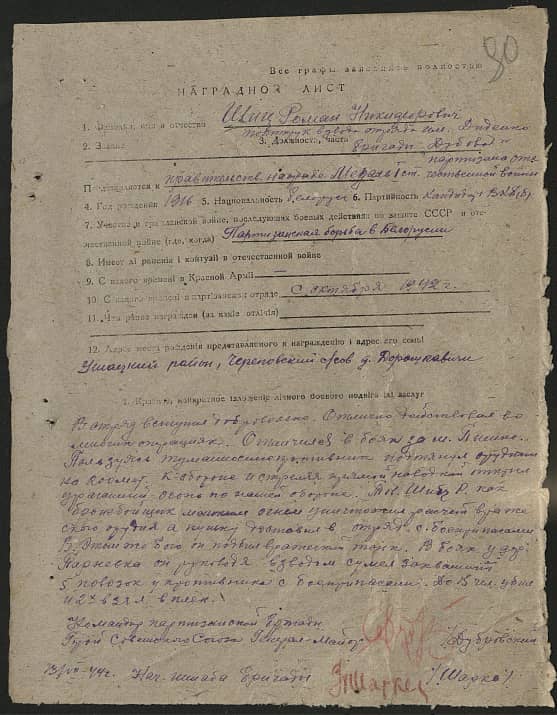 Все графы заполнять полностью
80
НАГРАДНОЙ ЛИСТ
1. Фамилия, имя и отчество Шиц Роман Никифорович
2. Звание политрук взвода отряда им. Диденко
3. Должность, часть бригады „Дубова"
Представляется к правительств. награде Медаль I ст. партизана оте-
чественной войны
4. Год рождения 1916 5. Национальность белорус 6. Партийность Кандидат ВКП(б)
7. Участие в гражданской войне, последующих боевых действиях по защите СССР и оте-
чественной войне (где, когда) Партизанская борьба в Белоруссии
8. Имеет ли ранения и контузии в отечественной войне
9. С какого времени в Красной Армии —
10. С какого времени в партизанском отряде с октября 1942 г.
11. Чем ранее награжден (за какие отличия)
12. Адрес места рождения представляемого к награждению и адрес его семьи
Ушацкий район, Череповский с/сов д. Дорошкавичи
1. Краткое, конкретное изложение личного боевого подвига или заслуг
В отряд вступил добровольно. Отлично действовал во
многих операциях. Отличился в боях за м. Пышно.
Пользуясь туманом противник подтянул орудия
к обороне и стреляя прямой наводкой открыл
ураганный огонь по нашей обороне. Тов. Шиц Р. как
бронебойщик метким огнем уничтожил расчет враже-
ского орудия а пушку доставил в отряд с боеприпасами
В этом же бою он подбил вражеский танк. В боях у дер.
он руководя взводом сумел захватить
5 повозок противника с боеприпасами. До 13 чел. убил
и 2х взял в плен.
Командир партизанской бригады
Герой Советского Союза Генерал-Майор /Дубровский
13/VII-44 г. Нач. штаба бригады /Шарко/